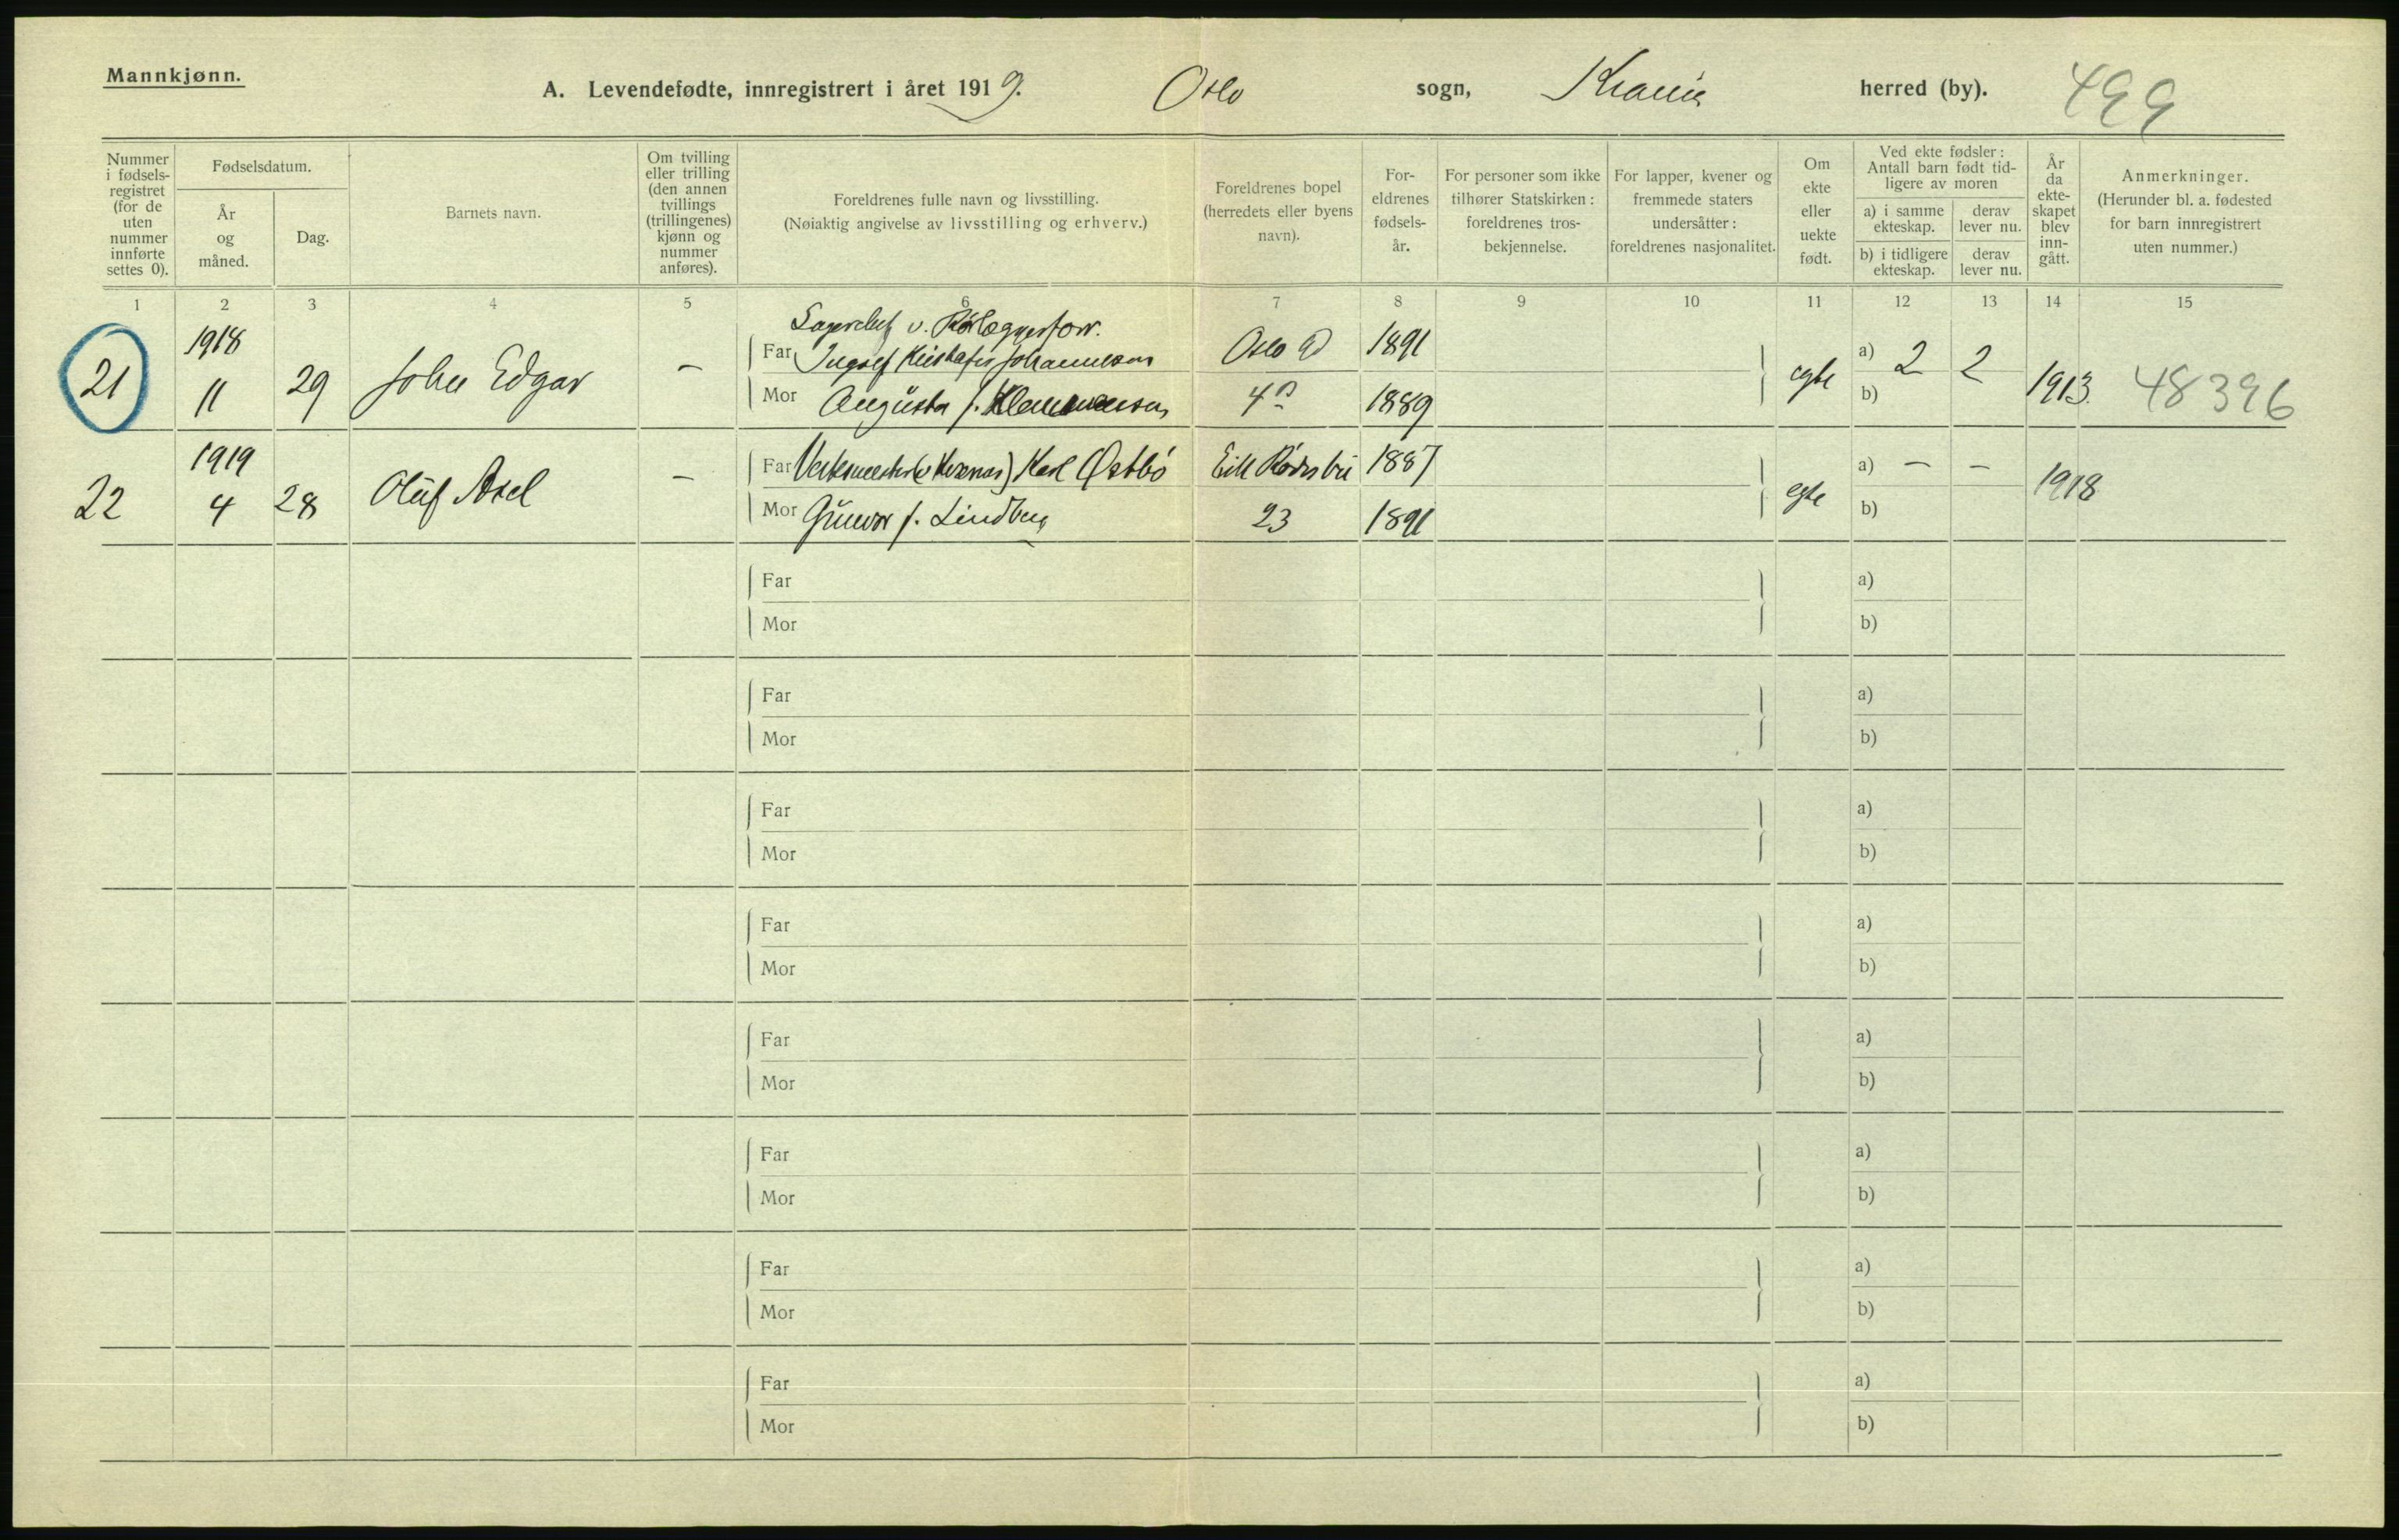 Mannkjønn.
A. Levendefødte, innregistrert i året 1919. Oslo sogn, Krania herred (by). 499
Nummer i fødsels-registret (for de uten nummer innførte settes 0).
Fødselsdatum.
År og måned.
Dag.
Barnets navn.
Om tvilling eller trilling (den annen tvillings (trillingenes) kjønn og nummer anføres).
Foreldrenes fulle navn og livsstilling.
(Nøiaktig angivelse av livsstilling og erhverv.)
Foreldrenes bopel (herredets eller byens navn).
For-eldrenes fødsels-år.
For personer som ikke tilhører Statskirken: foreldrenes tros-bekjennelse.
For lapper, kvener og fremmede staters undersåtter: foreldrenes nasjonalitet.
Om ekte eller uekte født.
Ved ekte fødsler: Antall barn født tid-ligere av moren
a) i samme ekteskap.
derav lever nu.
b) i tidligere ekteskap.
derav lever nu.
År da ekte-skapet blev inn-gått.
Anmerkninger.
(Herunder bl. a. fødested for barn innregistrert uten nummer.)
1 2 3 4 5 6 7 8 9 10 11 12 13 14 15
21 1918 11 29 John Edgar –
v. Rørlæggerforr.
Far Johannesen Oslo 1891
Mor Augusta f. 1889
egte a) 2 2 1913. 48396
b)
22 1919 4 28 Oluf Axel –
Far Karl Østbö 1887
Mor Gunvor f. Lindberg 23 1891
egte a) – – 1918
b)
Far a)
Mor b)
Far a)
Mor b)
Far a)
Mor b)
Far a)
Mor b)
Far a)
Mor b)
Far a)
Mor b)
Far a)
Mor b)
Far a)
Mor b)